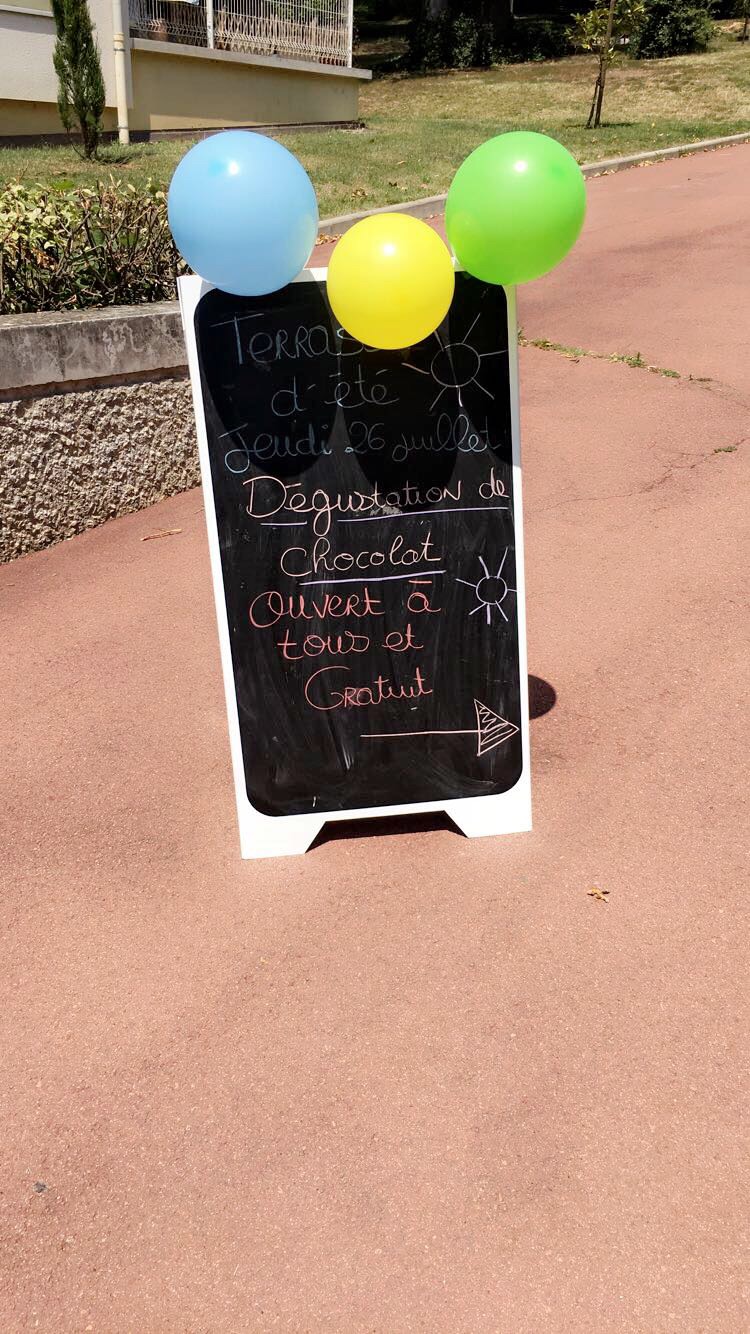 Terrasse
d'été
Jeudi 26 juillet
Dégustation de
chocolat
Ouvert à
tous et
Gratuit